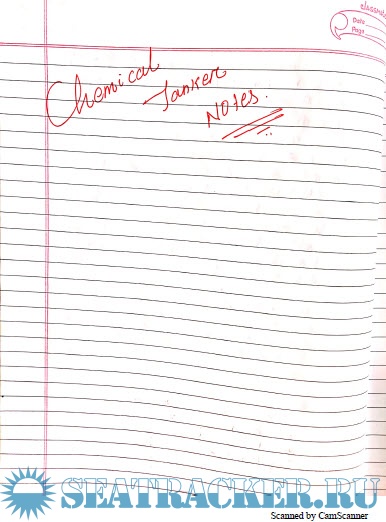 classmate
Date
Page
Chemical
Tanker
Notes.
SEATRACKER.RU
Scanned by CamScanner